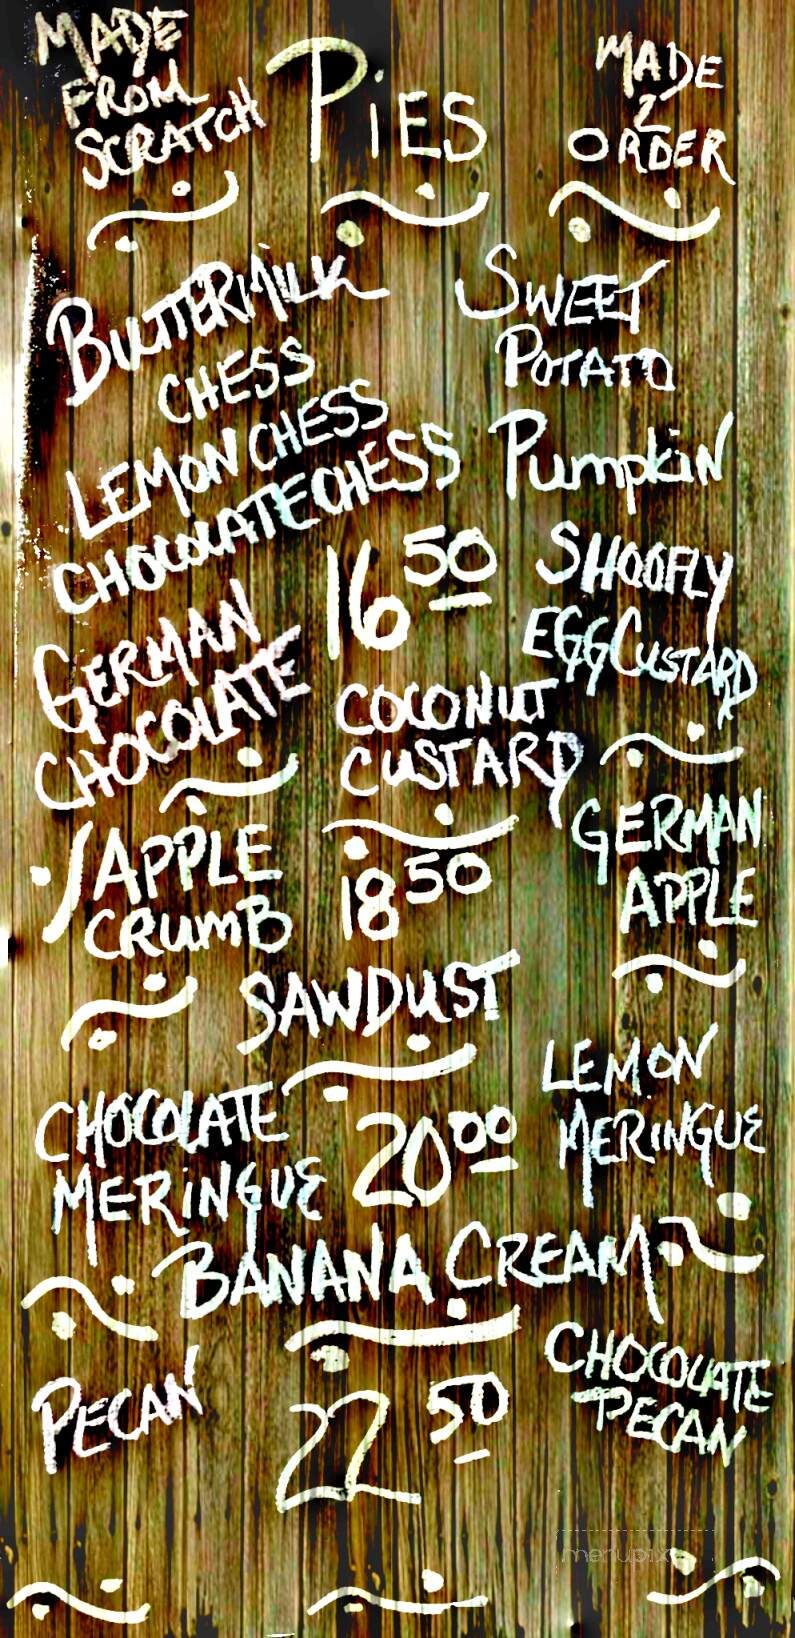 MADE
FROM
SCRATCH
PiES
MADE
2
ORDER
BUTTERMILK
CHESS
LEMON CHESS
CHOCOLATE CHESS
GERMAN
CHOCOLATE
16 50
COCONUT
CUSTARD
SWEET
POTATO
PumpkiN
SHOOFLY
EGG CUSTARD
APPLE
CRUMB
18 50
SAWDUST
GERMAN
APPLE
CHOCOLATE
MERiNGUE
20 00
BANANA CREAM
LEMON
MERiNGUE
PECAN
22 50
CHOCOLATE
PECAN
menupix